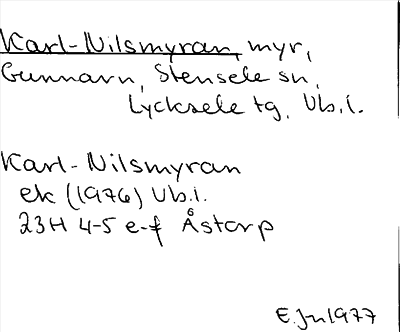 Karl-Nilsmyran, myr,
Gunnarn, Stensele sn,
Lycksele tg, Vb.l.
Karl-Nilsmyran
ek (1976) Vb.l.
23H 4-5 e-f Åstorp
E.Jn 1977